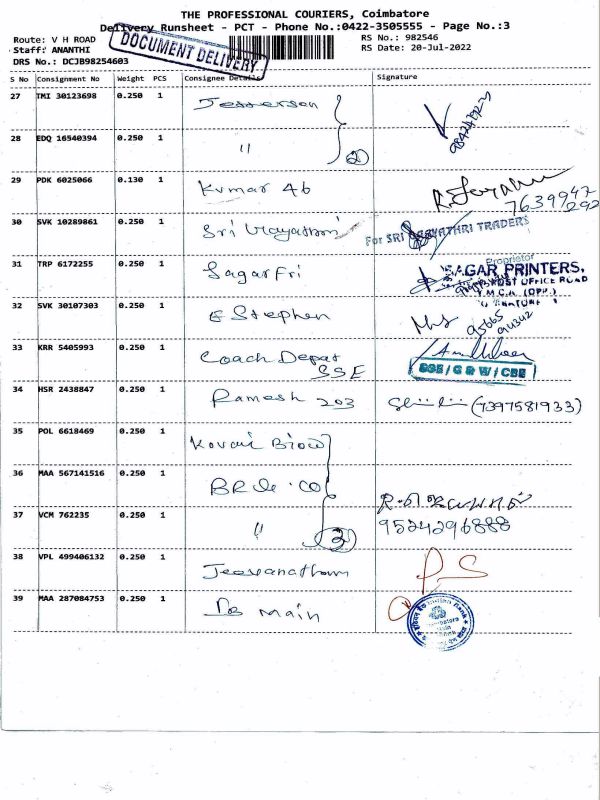 THE PROFESSIONAL COURIERS, Coimbatore
Delivery Runsheet - PCT - Phone No.:0422-3505555 - Page No.:3
Route: V H ROAD RS No.: 982546
Staff: ANANTHI RS Date: 20-Jul-2022
DRS No.: DCJB98254603
DOCUMENT DELIVERY
S No Consignment No Weight PCS Consignee Details Signature
27 TMI 30123698 0.250 1 Jefferson
28 EDQ 16540394 0.250 1 " 2
29 PDK 6025066 0.130 1 Kumar 46
7639947
292
30 SVK 10289861 0.250 1 Sri For SRI GAYATHRI TRADERS
Proprietor
31 TRP 6172255 0.250 1 Sagar Fri SAGAR PRINTERS,
POST OFFICE ROAD
Y.M.C.A. (OPP.)
32 SVK 30107303 0.250 1 E Stephen
33 KRR 5405993 0.250 1 Coach Depat
SSE SSE / G & W / CBE
34 HSR 2438847 0.250 1 Ramesh 203 (7397581933)
35 POL 6618469 0.250 1 Kovai
36 MAA 567141516 0.250 1
37 VCM 762235 0.250 1 " 3 9524296888
38 VPL 499406132 0.250 1 P S
39 MAA 287084753 0.250 1 Main Indian Bank